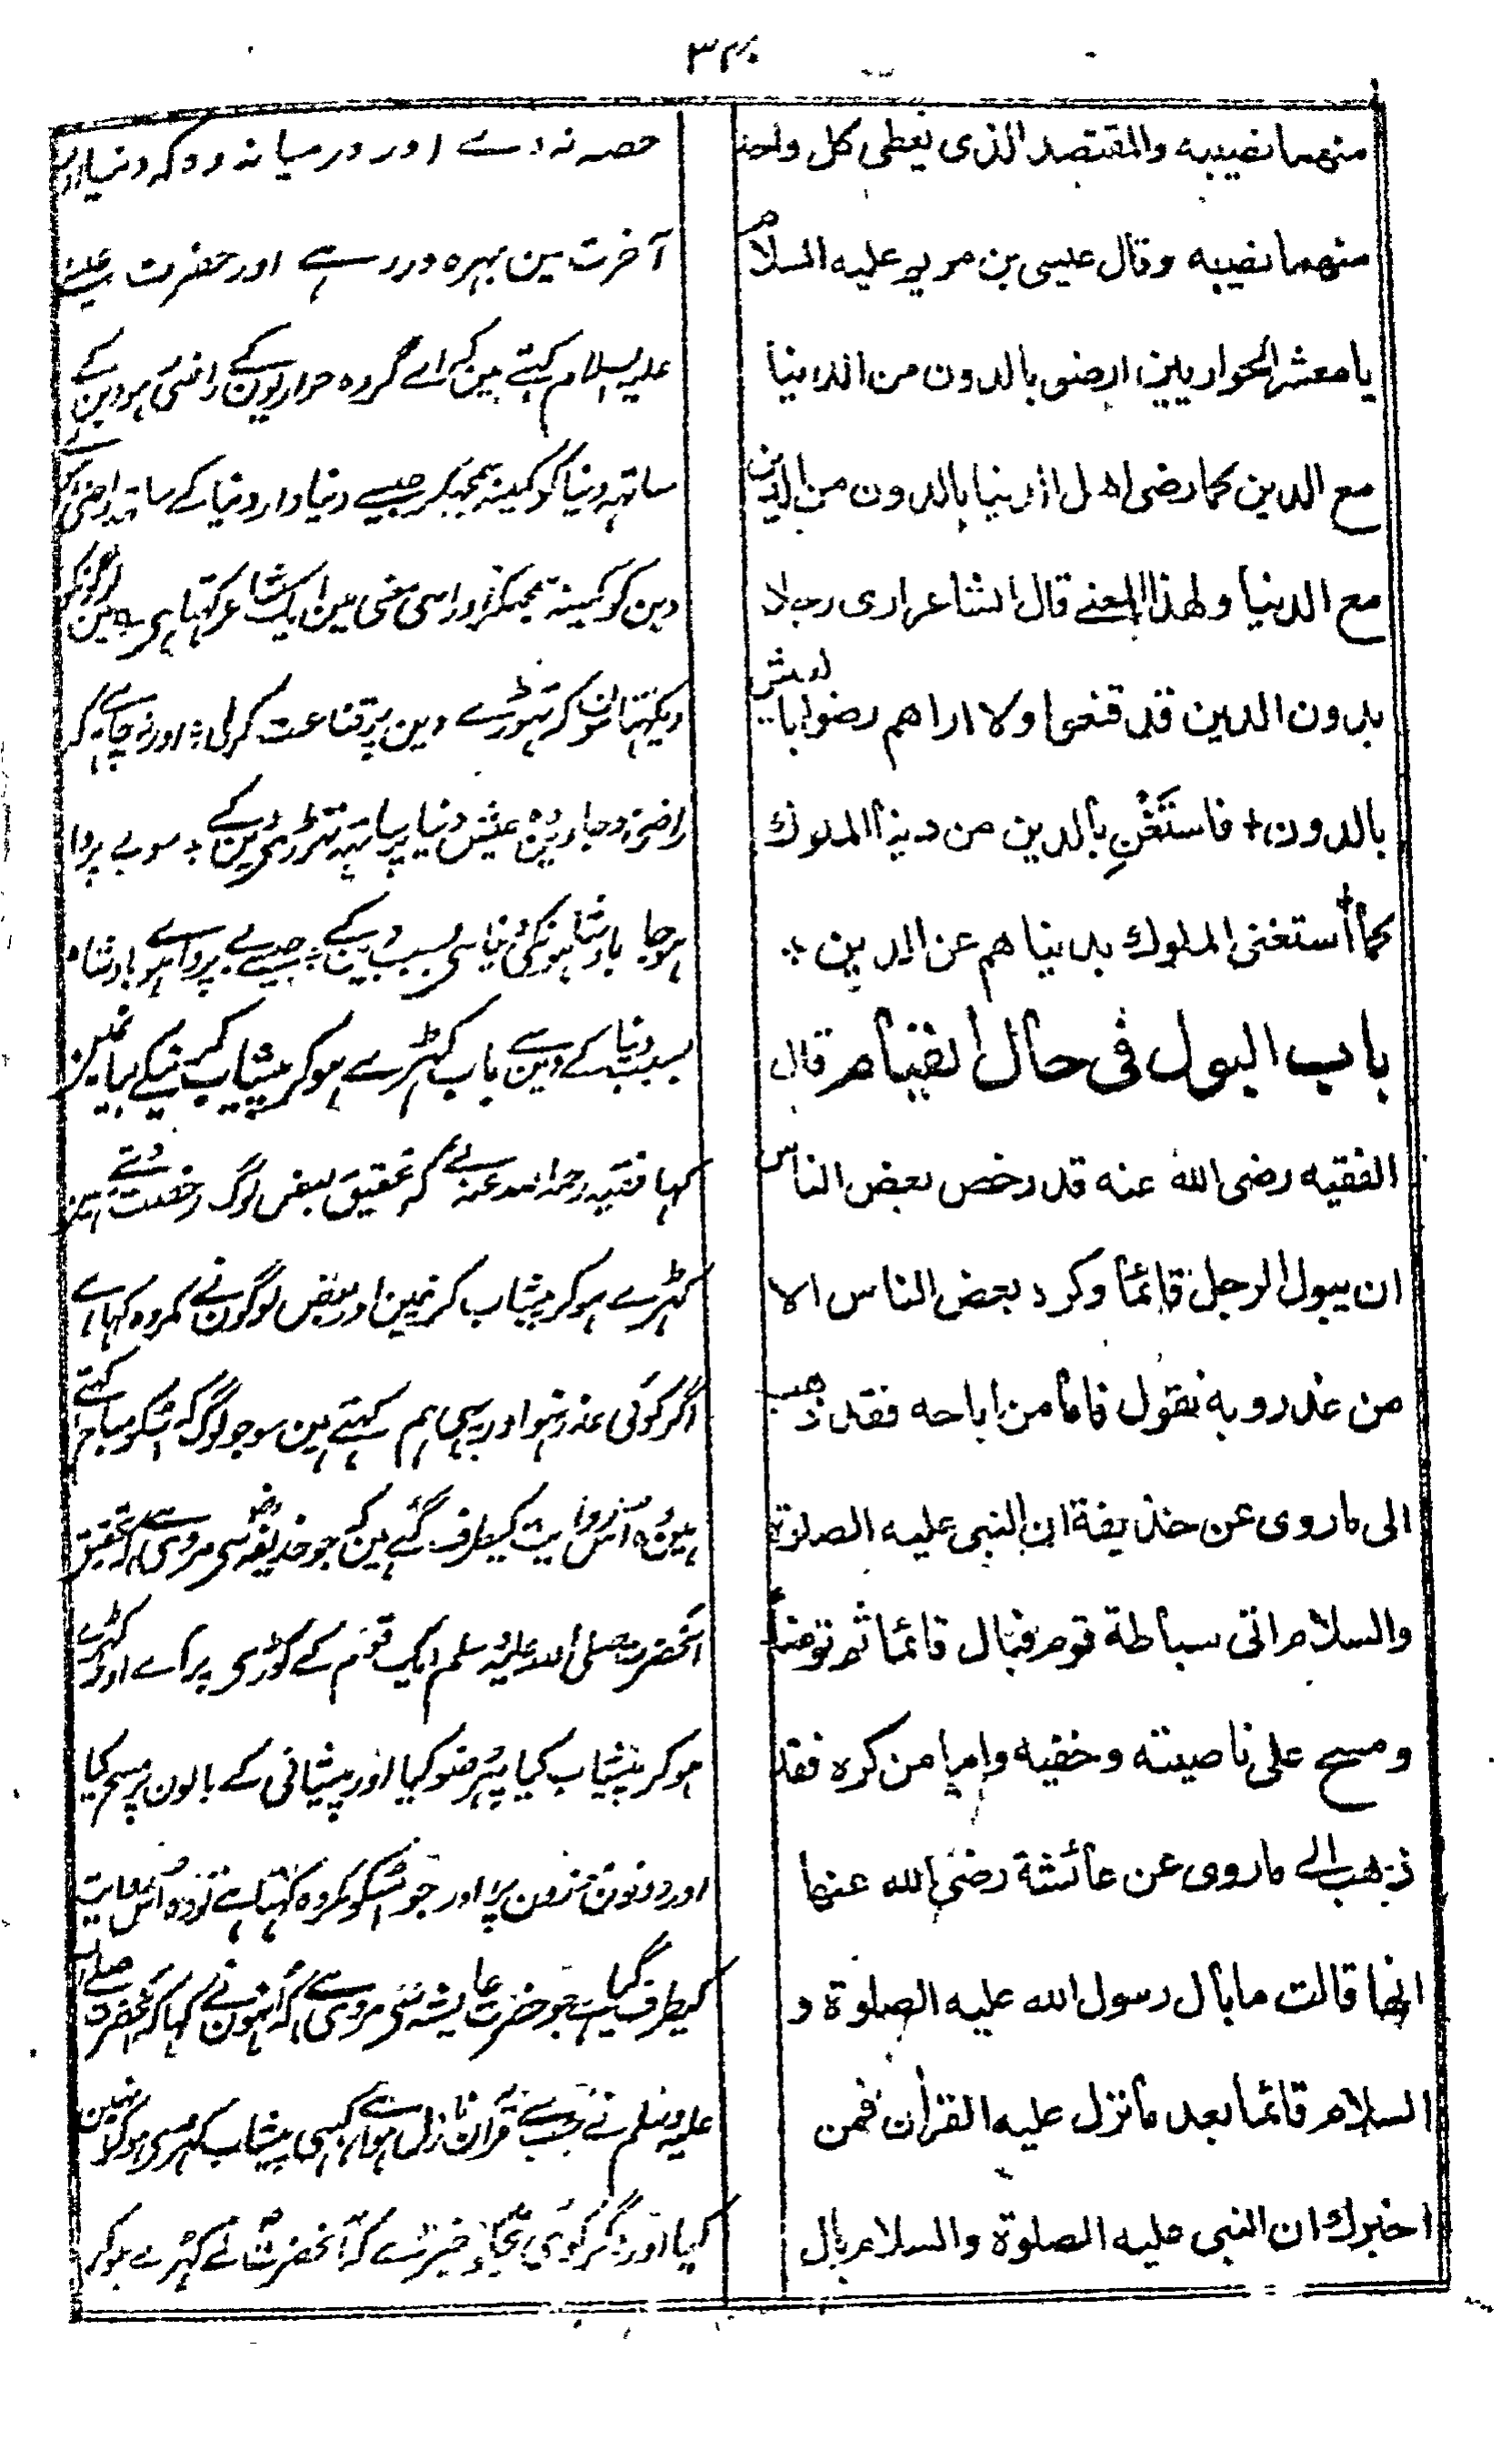 ۳۴۰
منهما نصيبه والمقتصد الذى يعطى كل واحد
منهما نصيبه وقال عيسى بن مريم عليه السلام
يا معشر الحواريين ارضوا بالدون من الدنيا
مع الدين كما رضى اهل الدنيا بالدون من الدين
مع الدنيا ولهذا المعنے قال الشاعر ارى رجالا
بدون الدين قد قنعوا ولا اراهم رضوا با لعيش
بالدون + فاستَغْنِ بالدين من دنيا الملوك
كما أستغنى الملوك بدنياهم عن الدين +
باب البول فى حال القيام قال
الفقيه رضى الله عنه قد رخص بعض الناس
ان يبول الرجل قائماً وكره بعض الناس الا
من عذر وبه نقول فاما من اباحه فقد ذهب
الى ما روى عن حذيفة ان النبى عليه الصلوة
والسلام اتى سباطة قوم فبال قائما ثم توضأ
ومسح على ناصيته وخفيه واما من كره فقد
ذهب الے ما روى عن عائشة رضى الله عنها
انها قالت ما بال رسول الله عليه الصلوة و
السلام قائما بعد ما نزل عليه القرأن فمن
اخبرك ان النبى عليه الصلوة والسلام بال
حصہ نہ دے اور درمیانہ رو کہ دنیا اور
آخرت مین بہرہ ور رہے اور حضرت عیسے
علیہ السلام کہتے ہین کہ اے گروہ حواریون کے راضی ہو دین کے
ساتہہ دنیا کو کمینہ سمجہکر جیسے دنیا دار دنیا کے ساتہہ راضی
دین کو کمینہ سمجہکر اور اسی معنی مین ایک شاعر کہتا ہی مین
دیکہتا ہون کہ تہوڑے دین پر قناعت کر لی ؛ اور
راضی عیش دنیا پر ساتہہ تہوڑے دین کے ؛ سو بے پروا
ہو جا بادشاہونکی دنیا سی بسبب دین کے ؛ جیسے بے پروا ہو بادشاہ
بسبب دنیا کے دین سے باب کہڑے ہو کر پیشاب کرنیکے بیا نمین
کہا فقیہ رحمہ اللہ عنہ نے کہ تحقیق بعض لوگ رخصت دیتے ہین
کہڑے ہو کر پیشاب کرنمین اور بعض لوگون نے مکروہ کہا ہے
اگر کوئی عذر نہو اور یہی ہم کہتے ہین سو جو لوگ کہ اسکو مباح کہتے
ہین وہ اس روایت کیطرف گئے ہین کہ جو حذیفہ رض سی مروی ہے کہ تحقیق
آنحضرت صلی اللہ علیہ وسلم ایک قوم کے کوڑی پر آے اور کہڑے
ہو کر پیشاب کیا پہر وضو کیا اور پیشانی کے بالون پر مسح کیا
اور دونون موزون پر اور جو اسکو مکروہ کہتا ہے تو وہ اس روایت
کیطرف گیا ہے جو حضرت عایشہ سی مروی ہے کہ اُنہون نے کہا کہ آنحضرت صلے اللہ
علیہ وسلم نے جب سے قرآن نازل ہوا ہے کبہی پیشاب کہڑے ہو کر نہین
کیا اور اگر کوئی تجکو خبر دے کہ آنحضرت نے کہڑے ہو کر